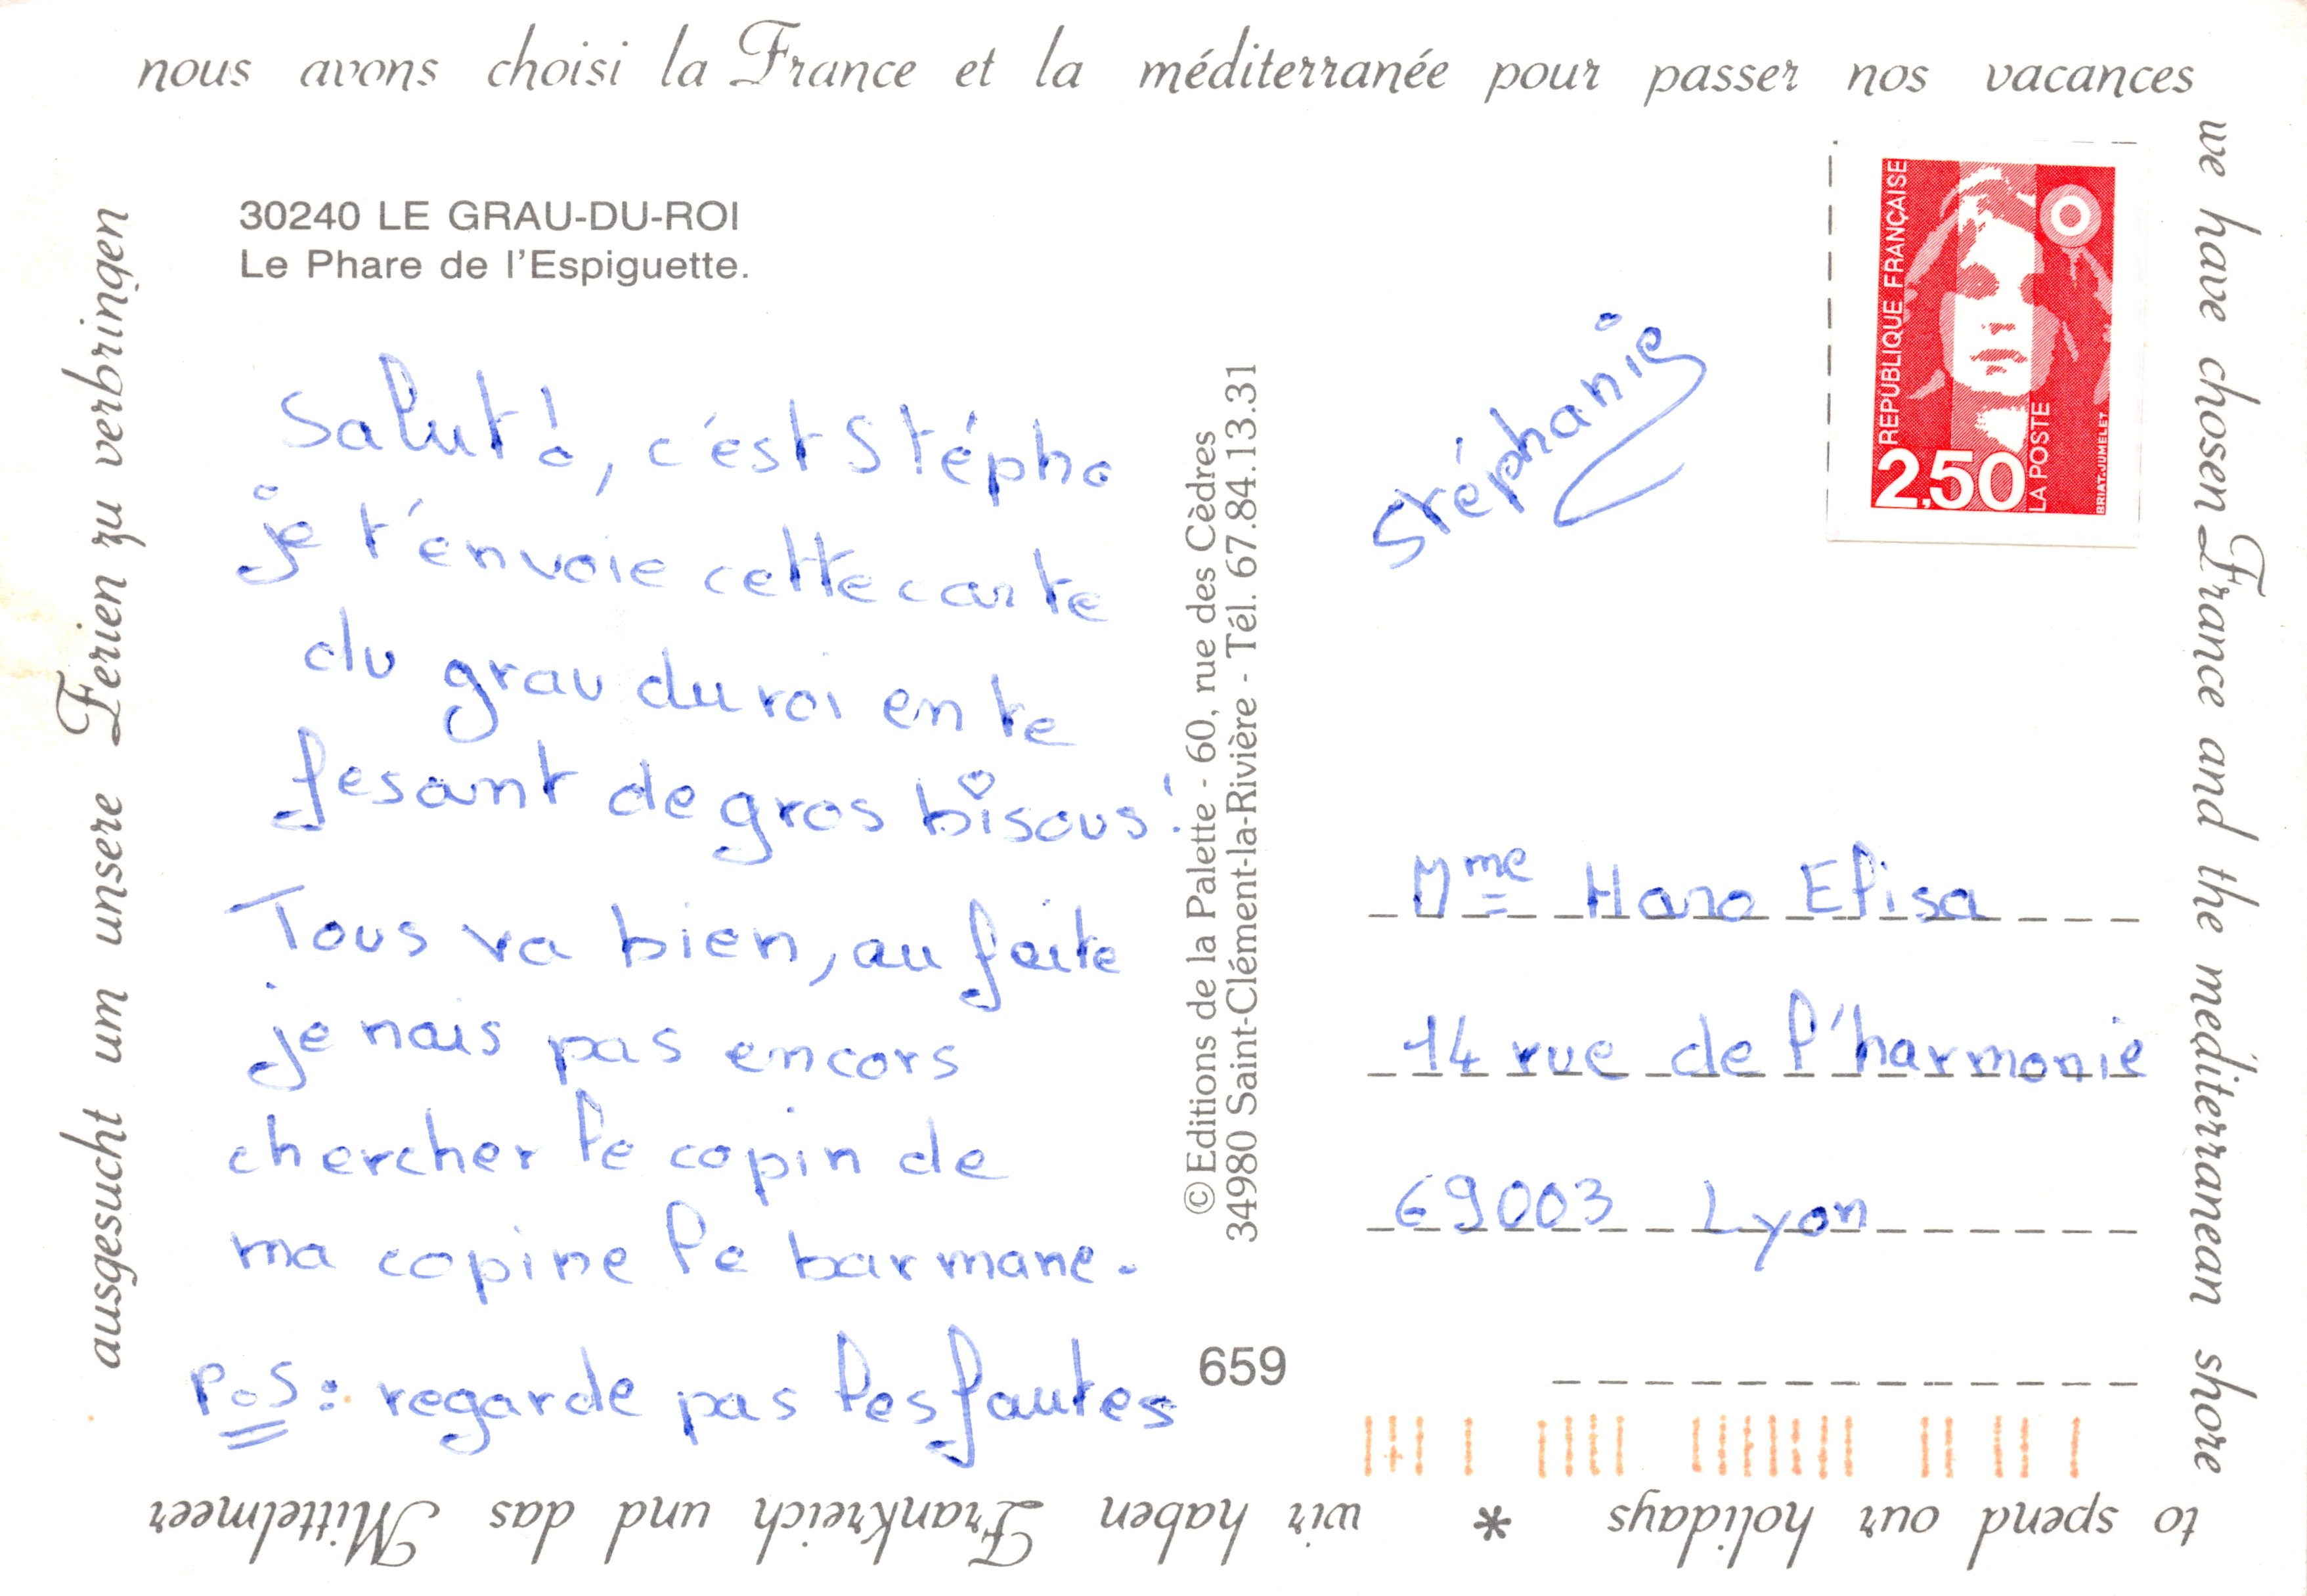 nous avons choisi la France et la méditerranée pour passer nos vacances
we have chosen France and the méditerranean shore
to spend our holidays * wir haben Frankreich und das Mittelmeer
ausgesucht um unsere Ferien zu verbringen
30240 LE GRAU-DU-ROI
Le Phare de l'Espiguette.
Salut!, c'est Stépho
je t'envoie cette carte
du grau du roi en te
fesant de gros bisous!
Tous va bien, au faite
je nais pas encors
chercher le copin de
ma copine le barmane.
P.S: regarde pas les fautes
© Editions de la Palette - 60, rue des Cèdres
34980 Saint-Clément-la-Rivière - Tél. 67.84.13.31
659
Stéphanie
REPUBLIQUE FRANÇAISE
2,50
LA POSTE
BRIAT.JUMELET
Mme Haro Elisa
14 rue de l'harmonie
69003 Lyon